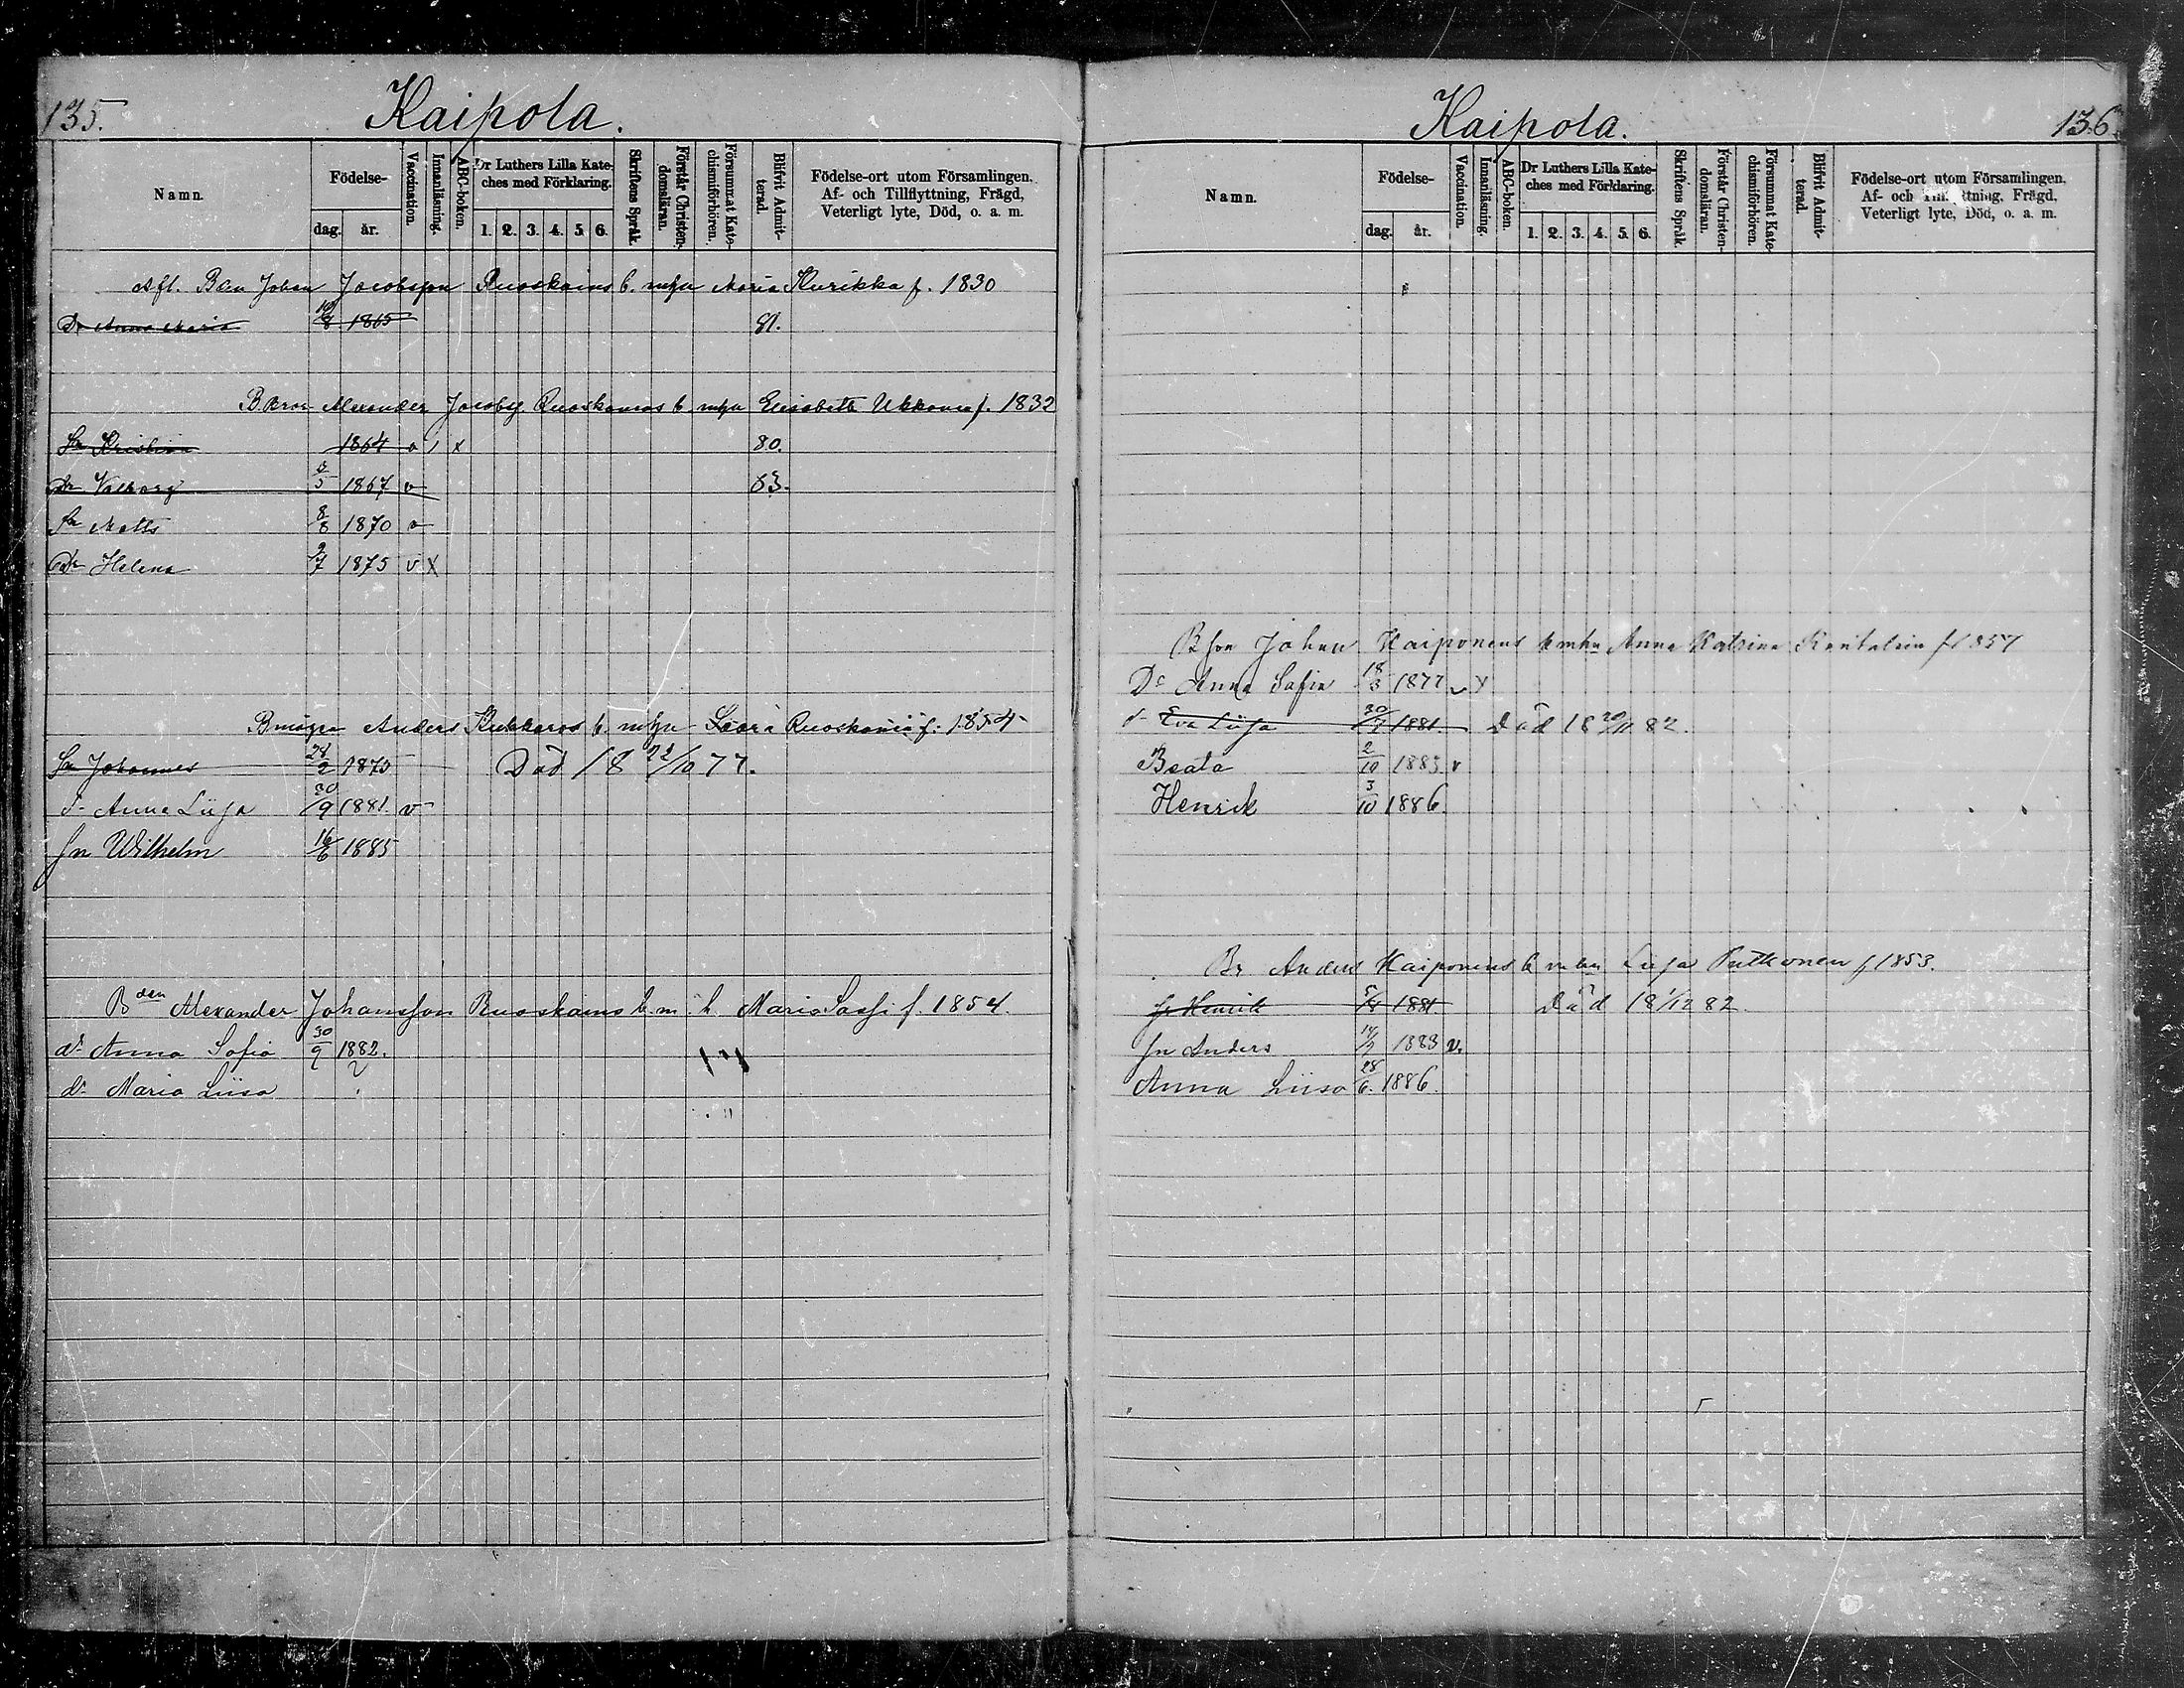 135.
Kaipola.
Namn.
Födelse-
dag.
år.
Vaccination.
Innanläsning.
ABC-boken.
Dr Luthers Lilla Kate-
ches med Förklaring.
1. 2. 3. 4. 5. 6.
Skriftens Språk.
Förstår Christen-
domsläran.
Försummat Kate-
chismiförhören.
Blifvit Admit-
terad.
Födelse-ort utom Församlingen,
Af- och Tillflyttning, Frägd,
Veterligt lyte, Död, o. a. m.
Afl. Bdn Johan Jacobsson Ruoskains b. mhu Maria Kurikka f. 1830
Dr Anna Maria 10/8 1865 81.
Alexander Jacobs Ruoskainos b mhu Elisabeth Ukkonen f. 1832
Sn Kristian 1864 v / x 80.
Dr Valborg 6/5 1867 v 83.
Sn Matts 8/8 1870 v
Dr Helena 2/7 1875 v X
Bmågen Anders Kukkaros b. mhu Saara Ruoskania f. 1854
Sn Johannes 28/2 1875 Död 18 22/10 77.
d. Anna Liisa 30/9 1881. v
Sn Wilhelm 16/6 1885
Bdn Alexander Johansson Ruoskains b. m. h. Maria Sassi f. 1854.
dr Anna Sofia 30/9 1882.
dr Maria Liisa
Kaipola.
136.
Namn.
Födelse-
dag.
år.
Vaccination.
Innanläsning.
ABC-boken.
Dr Luthers Lilla Kate-
ches med Förklaring.
1. 2. 3. 4. 5. 6.
Skriftens Språk.
Förstår Christen-
domsläran.
Försummat Kate-
chismiförhören.
Blifvit Admit-
terad.
Födelse-ort utom Församlingen,
Af- och Frägd,
Veterligt lyte, Död, o. a. m.
B son Johan Kaiponens b mhu Anna Katrina f 1857
Dr Anna Sofia 18/3 1877 v x
d. Eva Liisa 30/7 1881. Död 18 20/11 82.
Beata 2/10 1883 v
Henrik 3/10 1886.
Br Anders Kaiponens b m hu Liisa Putkonen f 1853.
Sn Henrik 5/4 1881 Död 18 1/12 82
Sn Anders 14/7 1883 v.
Anna Liisa 28/6. 1886.